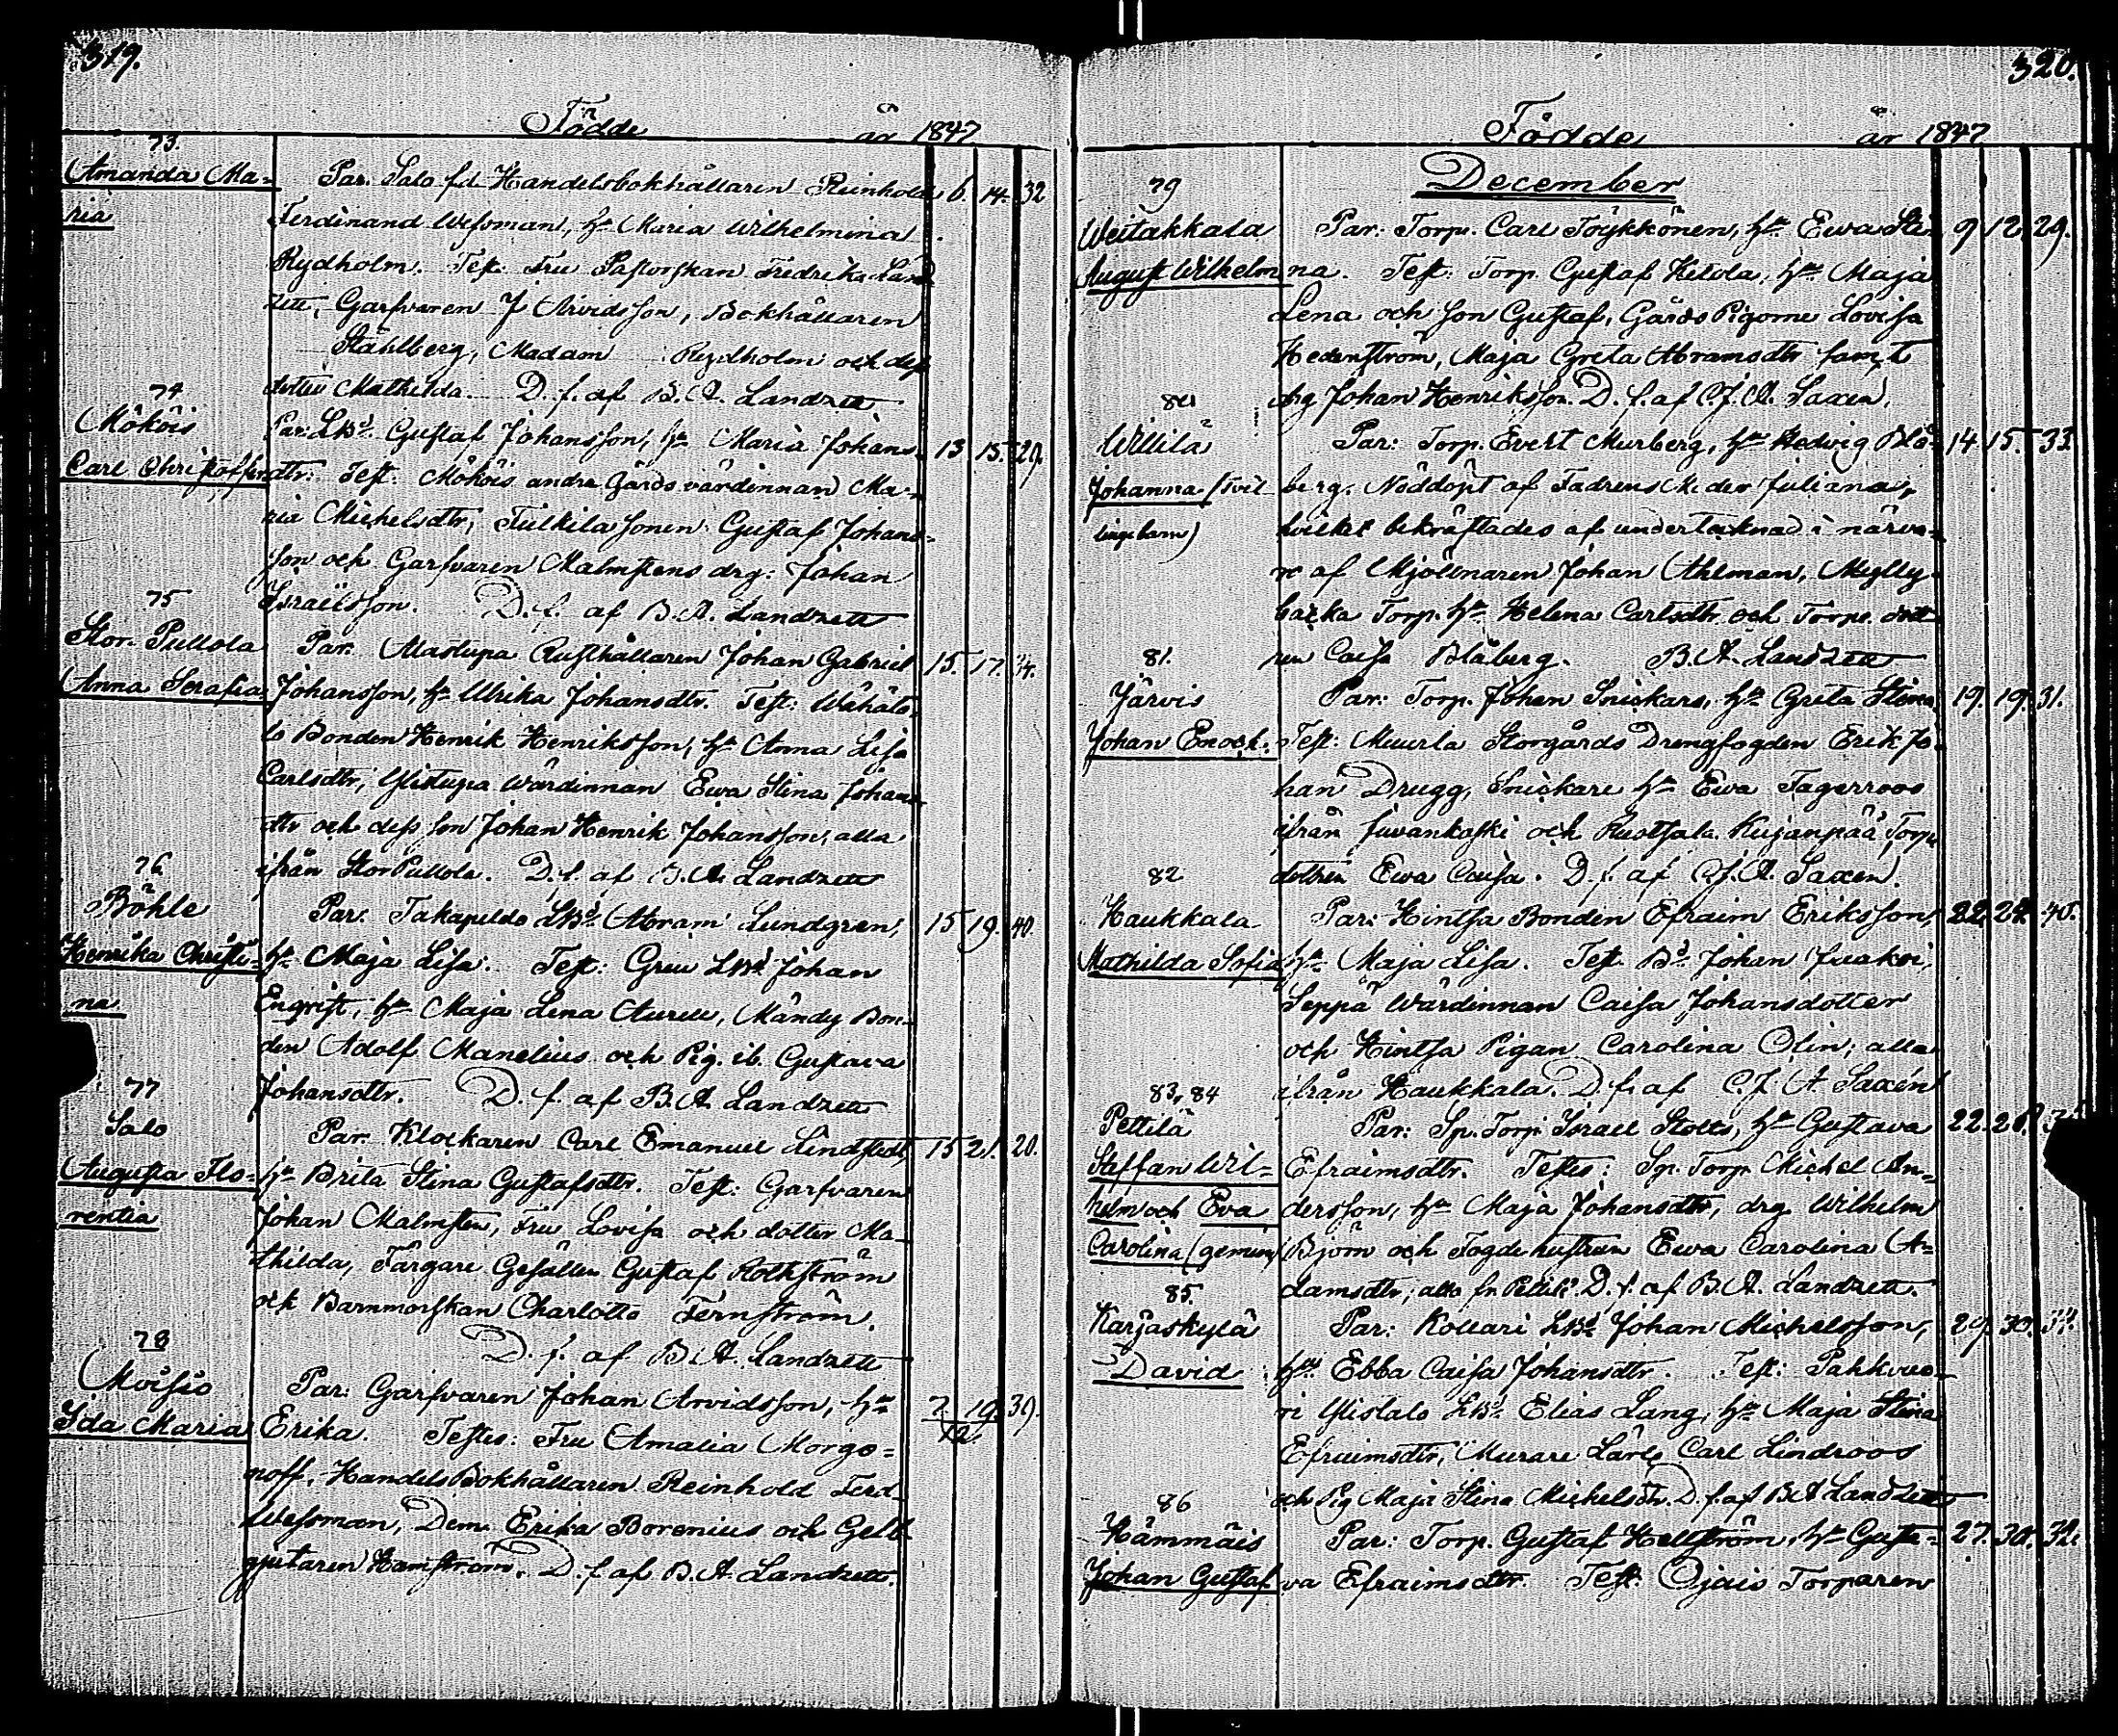 319.
Födde år 1847
73.
Amanda Ma= Par. Salo f.d. Handelsbokhållaren Reinhold 6. 14. 32
ria Ferdinand Wessman, hu Maria Wilhelmina
Rydholm. Test: Fru Pastorskan Fredrika Land
zett, Garfvaren J Arvidsson, Bokhållaren
Ståhlberg, Madam Rydholm och dess
74 dotter Mathilda. D. f. af B. A. Landzett
Mököis Par: LBd. Gustaf Johansson, hu Maria Johans- 13. 15. 29.
Carl Christoffer dtr: Test. Mököis andra Gårds värdinnan Ma-
ria Michelsdtr, Tulkila sonen Gustaf Johans-
son och Garfvaren Malmstens drg: Johan
75 Israelsson. D. f. af B. A. Landzett
Stor-Pullola Par. Mastupa Rusthållaren Johan Gabriel 15. 17.
Anna Serafia Johansson, hu Ulrika Johansdtr. Test:
Bonden Henrik Henriksson, hu Anna Lisa
Carlsdtr, Ylistupa Wärdinnan Ewa Stina Johans
dtr och dess son Johan Henrik Johansson, alla
76 ifrån Stor Pullola. D. f. af B. A. Landzett
Böhle Par. Takapuldo LBd. Abram Lundgren, 15 19. 40.
Henrika Christi= hu Maja Lisa. Test: LBd Johan
na Engrist, hu Maja Lena Aurell, Bon-
den Adolf Manelius och Pig. ib. Gustava
77 Johansdtr. D. f. af B. A. Landzett
Salo Par. Klockaren Carl Emanuel Lindstedt, 15 21. 20.
Augusta Flo- hu Brita Stina Gustafsdtr. Test: Garfvaren
rentia Johan Malmsten, Fru Lovisa och dotter Ma-
thilda, Färgare Gesällen Gustaf Rothström
och Barnmorskan Charlotta Fernström.
78 D. f. af B. A. Landzett
Moisio Par: Garfvaren Johan Arvidsson, hu 7/12. 19. 39.
Ida Maria Erika. Testes: Fru Amalia Morgo=
noff, Handels Bokhållaren Reinhold Ferd-
Wessman, Dem. Erika Borenius och Gelb
gjutaren Hamström. D. f. af B. A. Landzett.
320.
Födde år 1847
79 December
Weitakkala Par: Torp. Carl Töykkönen, hu Ewa Sti 9 12. 29.
August Wilhelm na. Test: Torp. Gustaf Ketola, hu Maja
Lena och son Gustaf, Gårds Pigorne Lovisa
Hedenström, Maja Greta Abramsdtr samt
80 drg Johan Henriksson. D. f. af C. J. A. Saxén.
Willilä Par: Torp. Evert Murberg, hu Hedwig Blå- 14. 15. 33
Johanna (tvil- berg. Nöddöpt af Fadrens Mder Juliana,
lingebarn) hvilket bekräftades af undertecknad i närva-
re af Mjölnaren Johan Ahlman, Mylly-
backa Torp. hu Helena Carlsdtr och Torps dott
81. ren Caisa Blåberg. B. A. Landzett
Järvis Par: Torp. Johan Snickars, hu Greta Stina 19. 19. 31.
Johan Enock. Test: Muurla Storgårds Drengfogden Erik Jo-
han Drugg, Snickare hu Ewa Fagerroos
ifrån Juvankoski och Ruotsala Kujanpää Torp.
82 dottren Ewa Caisa. D. f. af C. J. A. Saxén.
Haukkala Par: Hintsa Bonden Efraim Eriksson, 22. 24. 40.
Mathilda Sofia hu Maja Lisa. Test. Bd. Johan
Seppä Wärdinnan Caisa Johansdotter
och Hintsa Pigan Carolina Olin, alla
83, 84 ifrån Haukkala. D. f. af C. J. A. Saxén
Pettilä Par: Sp. Torp. Israel Stolts, hu Gustava 22. 26.
Steffan Wil= Efraimsdtr. Testes: Sp. Torp. Michel An-
helm och Eva dersson, hu Maja Johansdtr, drg Wilhelm
Carolina (gemini) Björn och Fogdehustrun Ewa Carolina A=
85. damsdtr, alla fr. Pettilä. D. f. af B. A. Landzett.
Karjaskylä Par: Kollari LBd Johan Michelsson, 29. 30.
David hu Ebba Caisa Johansdtr. Test: Pakkvuo-
ri Ylistalo LBd. Elias Lang, hu Maja Stina
Efraimsdtr, Murare Lärl. Carl Lindroos
86 och Pig Maja Stina Michelsdtr. D. f. af B A Landzett
Hämmäis Par: Torp. Gustaf Hellström, hu Gusta- 27. 30. 32.
Johan Gustaf va Efraimsdtr. Test: Ojais Torparen